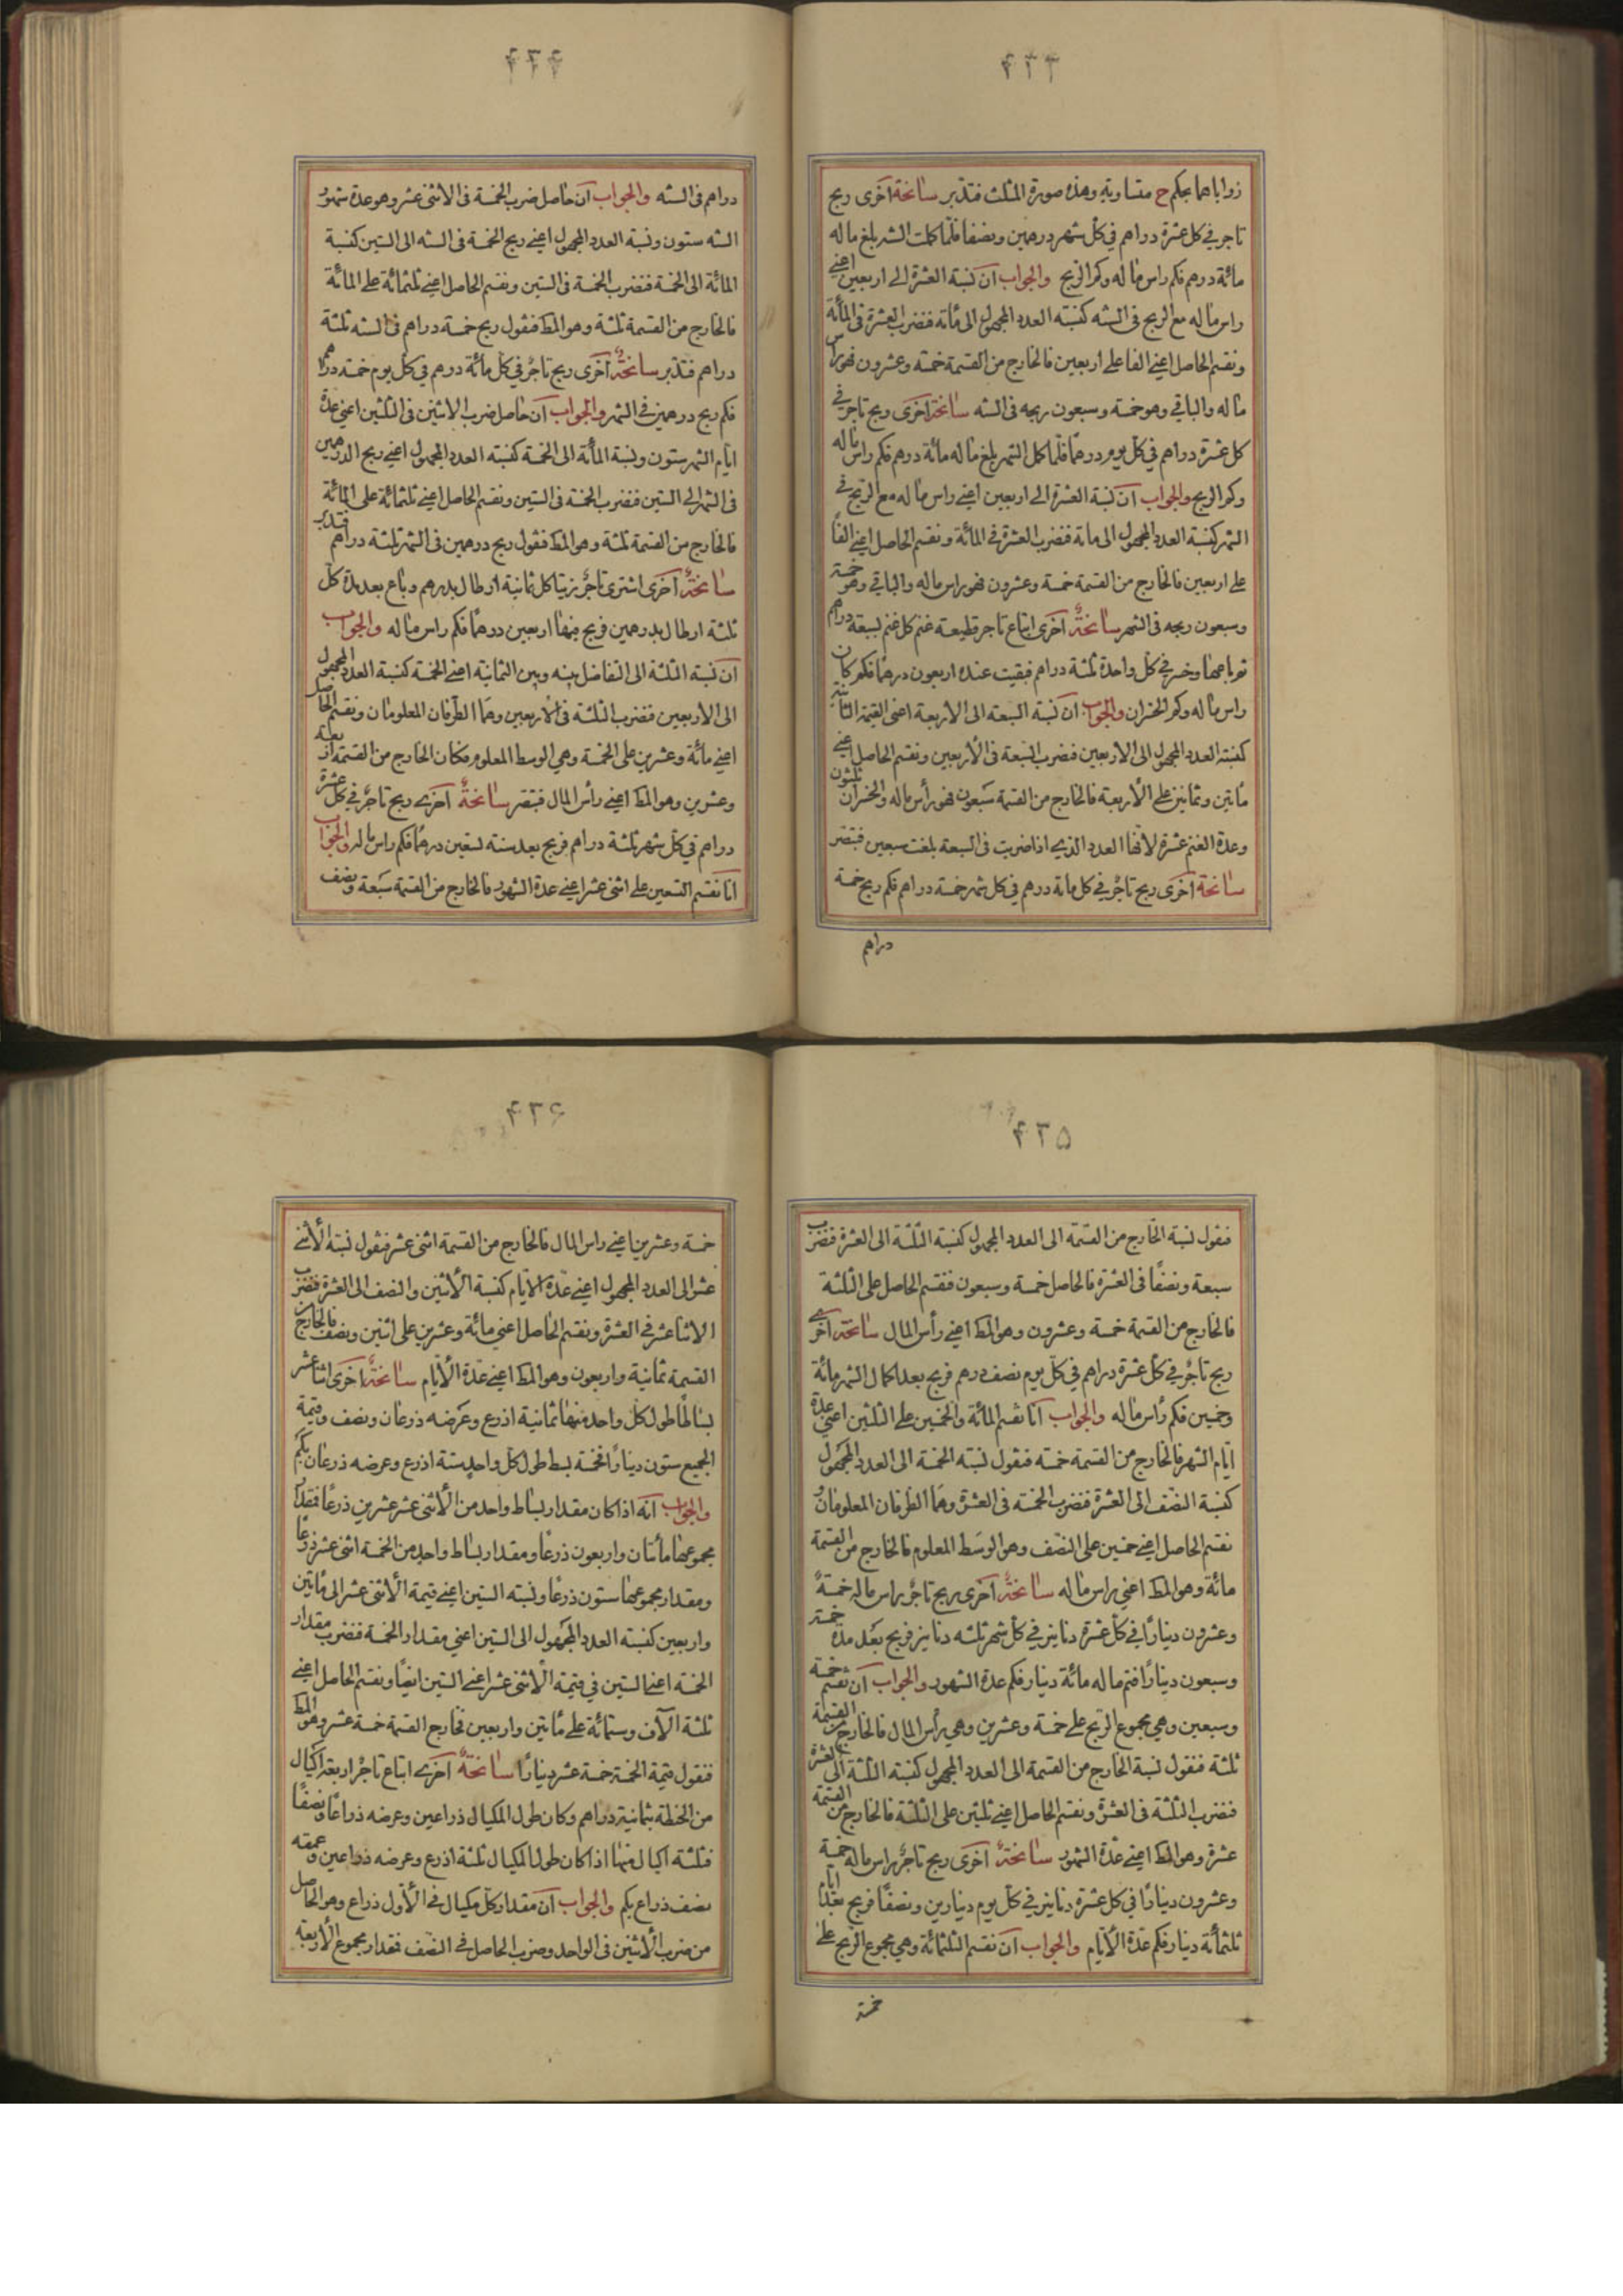 ۴۳۳
زواياها بحكم ح متساوية وهذه صورة المثلث فتدبر سانحة اخرى ربح
تاجر في كل عشرة دراهم في كل شهر درهمين ونصفا فلما كملت السنه بلغ ماله
مائة درهم فكم راس ماله وكم الربح والجواب ان نسبة العشرة الى اربعين اعني
راس ماله مع الربح في السنه كنسبة العدد المجهول الى مائة فنضرب العشرة في المائة
ونقسم الحاصل اعني الفا على اربعين فالخارج من القسمة خمسة وعشرون فهو راس
ماله والباقي وهو خمسة وسبعون ربحه في السنه سانحة اخرى ربح تاجر في
كل عشرة دراهم في كل يوم درهما فلما كمل الشهر بلغ ماله مائة درهم فكم راس ماله
وكم الربح والجواب ان نسبة العشرة الى اربعين اعني راس ماله مع الربح في
الشهر كنسبة العدد المجهول الى مائة فنضرب العشرة في المائة ونقسم الحاصل اعني الفا
على اربعين فالخارج من القسمة خمسة وعشرون فهو راس ماله والباقي وهو خمسة
وسبعون ربحه في الشهر سانحة اخرى ابتاع تاجر قطيعة غنم كل غنم بسبعة دراهم
ثم باعها وخسر في كل واحدة ثلثة دراهم فبقيت عنده اربعون درهما فكم كان
راس ماله وكم الخسران والجواب ان نسبة السبعة الى الاربعة اعني القيمة الثانية
كنسبة العدد المجهول الى الاربعين فنضرب السبعة في الاربعين ونقسم الحاصل اعني
مأتين وثمانين على الاربعة فالخارج من القسمة سبعون فهو رأس ماله والخسران ثلثون
وعدة الغنم عشرة لانها العدد الذي اذا ضربت في السبعة بلغت سبعين فتبصر
سانحة اخرى ربح تاجر في كل مائة درهم في كل شهر خمسة دراهم فكم ربح خمسة
دراهم
۴۳۴
دراهم في السنه والجواب ان حاصل ضرب الخمسة في الاثنى عشر وهو عدة شهور
السنه ستون ونسبة العدد المجهول اعني ربح الخمسة في السنه الى الستين كنسبة
المائة الى الخمسة فنضرب الخمسة في الستين ونقسم الحاصل اعني ثلثمائة على المائة
فالخارج من القسمة ثلثة وهو المط فنقول ربح خمسة دراهم في السنه ثلثة
دراهم فتدبر سانحة اخرى ربح تاجر في كل مائة درهم في كل يوم خمسة دراهم
فكم ربح درهمين في الشهر والجواب ان حاصل ضرب الاثنين في الثلثين اعني عدة
ايام الشهر ستون ونسبة المأة الى الخمسة كنسبة العدد المجهول اعني ربح الدرهمين
في الشهر الى الستين فنضرب الخمسة في الستين ونقسم الحاصل اعني ثلثمائة على المائة
فالخارج من القسمة ثلثة وهو المط فنقول ربح درهمين في الشهر ثلثة دراهم فتدبر
سانحة اخرى اشترى تاجر زيتا كل ثمانية ارطال بدرهم وباع بعد مدة كل
ثلثة ارطال بدرهمين فربح فيها اربعين درهما فكم راس ماله والجواب
ان نسبة الثلثة الى التفاضل بينه وبين الثمانية اعني الخمسة كنسبة العدد المجهول
الى الاربعين فنضرب الثلثة في الاربعين وهما الطرفان المعلومان ونقسم الحاصل
اعني مائة وعشرين على الخمسة وهي الوسط المعلوم فكان الخارج من القسمة اربعة
وعشرين وهو المط اعني رأس المال فتبصر سانحة اخرى ربح تاجر في كل عشرة
دراهم في كل شهر ثلثة دراهم فربح بعد سنة تسعين درهما فكم راس ماله والجواب
انا نقسم التسعين على اثنى عشر اعني عدة الشهور فالخارج من القسمة سبعة ونصف
۴۳۵
فنقول نسبة الخارج من القسمة الى العدد المجهول كنسبة الثلثة الى العشرة فنضرب
سبعة ونصفا في العشرة فالحاصل خمسة وسبعون فنقسم الحاصل على الثلثة
فالخارج من القسمة خمسة وعشرون وهو المط اعني رأس المال سانحة اخرى
ربح تاجر في كل عشرة دراهم في كل يوم نصف درهم فربح بعد اكمال الشهر مائة
وخمسين فكم رأس ماله والجواب انا نقسم المائة والخمسين على الثلثين اعني عدة
ايام الشهر فالخارج من القسمة خمسة فنقول نسبة الخمسة الى العدد المجهول
كنسبة النصف الى العشرة فنضرب الخمسة في العشرة وهما الطرفان المعلومان
نقسم الحاصل اعني خمسين على النصف وهو الوسط المعلوم فالخارج من القسمة
مائة وهو المط اعني راس ماله سانحة اخرى ربح تاجر براس ماله خمسة
وعشرون دينارا في كل عشرة دنانير في كل شهر ثلثه دنانير فربح بعد مدة خمسة
وسبعون دينارا فتم ماله مائة دينار فكم عدة الشهور والجواب ان نقسم خمسة
وسبعين وهي مجموع الربح على خمسة وعشرين وهي رأس المال فالخارج من القسمة
ثلثة فنقول نسبة الخارج من القسمة الى العدد المجهول كنسبة الثلثة الى العشرة
فنضرب الثلثة في العشرة ونقسم الحاصل اعني ثلثين على الثلثة فالخارج من القسمة
عشرة وهو المط اعني عدة الشهور سانحة اخرى ربح تاجر براس ماله خمسة
وعشرون دينارا في كل عشرة دنانير في كل يوم دينارين ونصفا فربح بعد ايام
ثلثمأة دينار فكم عدة الأيام والجواب ان نقسم الثلثمائة وهي مجموع الربح على
خمسة
۴۳۶
خمسة وعشرين اعني راس المال فالخارج من القسمة اثنى عشر فنقول نسبة الأثنى
عشر الى العدد المجهول اعني عدة الايام كنسبة الأثنين والنصف الى العشرة فنضرب
الاثنا عشر في العشرة ونقسم الحاصل اعني مائة وعشرين على اثنين ونصف فالخارج من
القسمة ثمانية واربعون وهو المط اعني عدة الأيام سانحة اخرى اثنا عشر
بساطا طول كل واحد منها ثمانية اذرع وعرضه ذرعان ونصف وقيمة
الجميع ستون دينارا فخمسة بسط طول كل واحد ستة اذرع وعرضه ذرعان بكم
والجواب انه اذا كان مقدار بساط واحد من الأثنى عشر عشرين ذرعا فمقدار
مجموعها مأتان واربعون ذرعا ومقدار بساط واحد من الخمسة اثنى عشر ذرعا
ومقدار مجموعها ستون ذرعا ونسبة الستين اعني قيمة الأثنى عشر الى مأتين
واربعين كنسبة العدد المجهول الى الستين اعني مقدار الخمسة فنضرب مقدار
الخمسة اعني الستين في قيمة الأثنى عشر اعني الستين ايضا ونقسم الحاصل اعني
ثلثة الآف وستمائة على مأتين واربعين فخارج القسمة خمسة عشر وهو المط
فنقول قيمة الخمسة خمسة عشر دينارا سانحة اخرى ابتاع تاجر اربعة اكيال
من الحنطة بثمانية دراهم وكان طول المكيال ذراعين وعرضه ذراعا ونصفا
فثلثة اكيال منها اذا كان طول المكيال ثلثة اذرع وعرضه ذراعين وعمقه
نصف ذراع بكم والجواب ان مقدار كل مكيال في الأول ذراع وهو الحاصل
من ضرب الأثنين في الواحد وضرب الحاصل في النصف فمقدار مجموع الأربعة